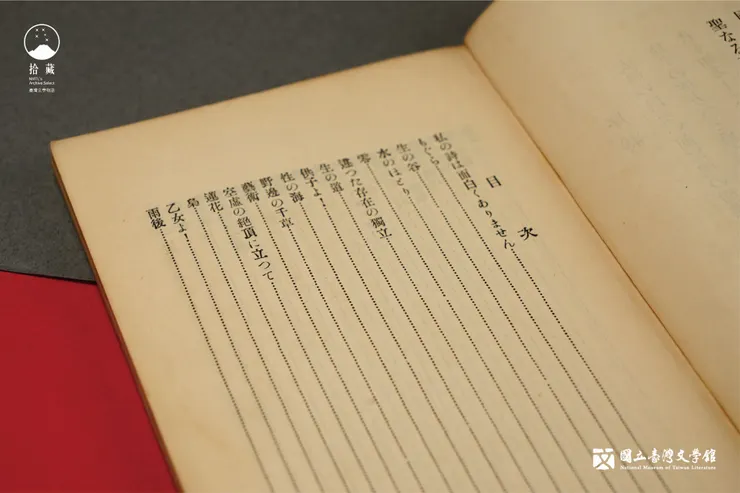 拾藏
NMTL's
Archive Select
臺灣文學物語
聖なる
目次
私の詩は面白くありません
もぐら
生の谷
水のほとり
零
違つた存在の獨立
生の道
供子よ！
性の海
野邊の千草
藝術
空虛の絶頂に立つて
蓮花
乙女よ！
雨後
國立臺灣文學館
National Museum of Taiwan Literature